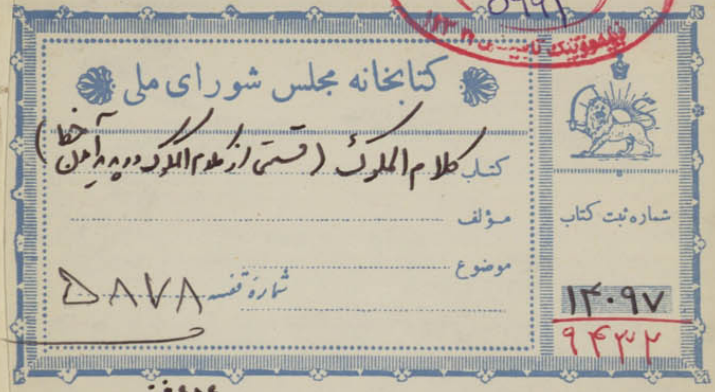 ۵۹۹۱
۱۳۲۱
کتابخانه مجلس شورای ملی
کتاب کلام الملوک (قسمتی از کلام الملوک در
خطا)
مؤلف
موضوع
شمارهٔ قفسه ۵۸۷۸
شماره ثبت کتاب
۱۴۰۹۷
۹۴۳۲